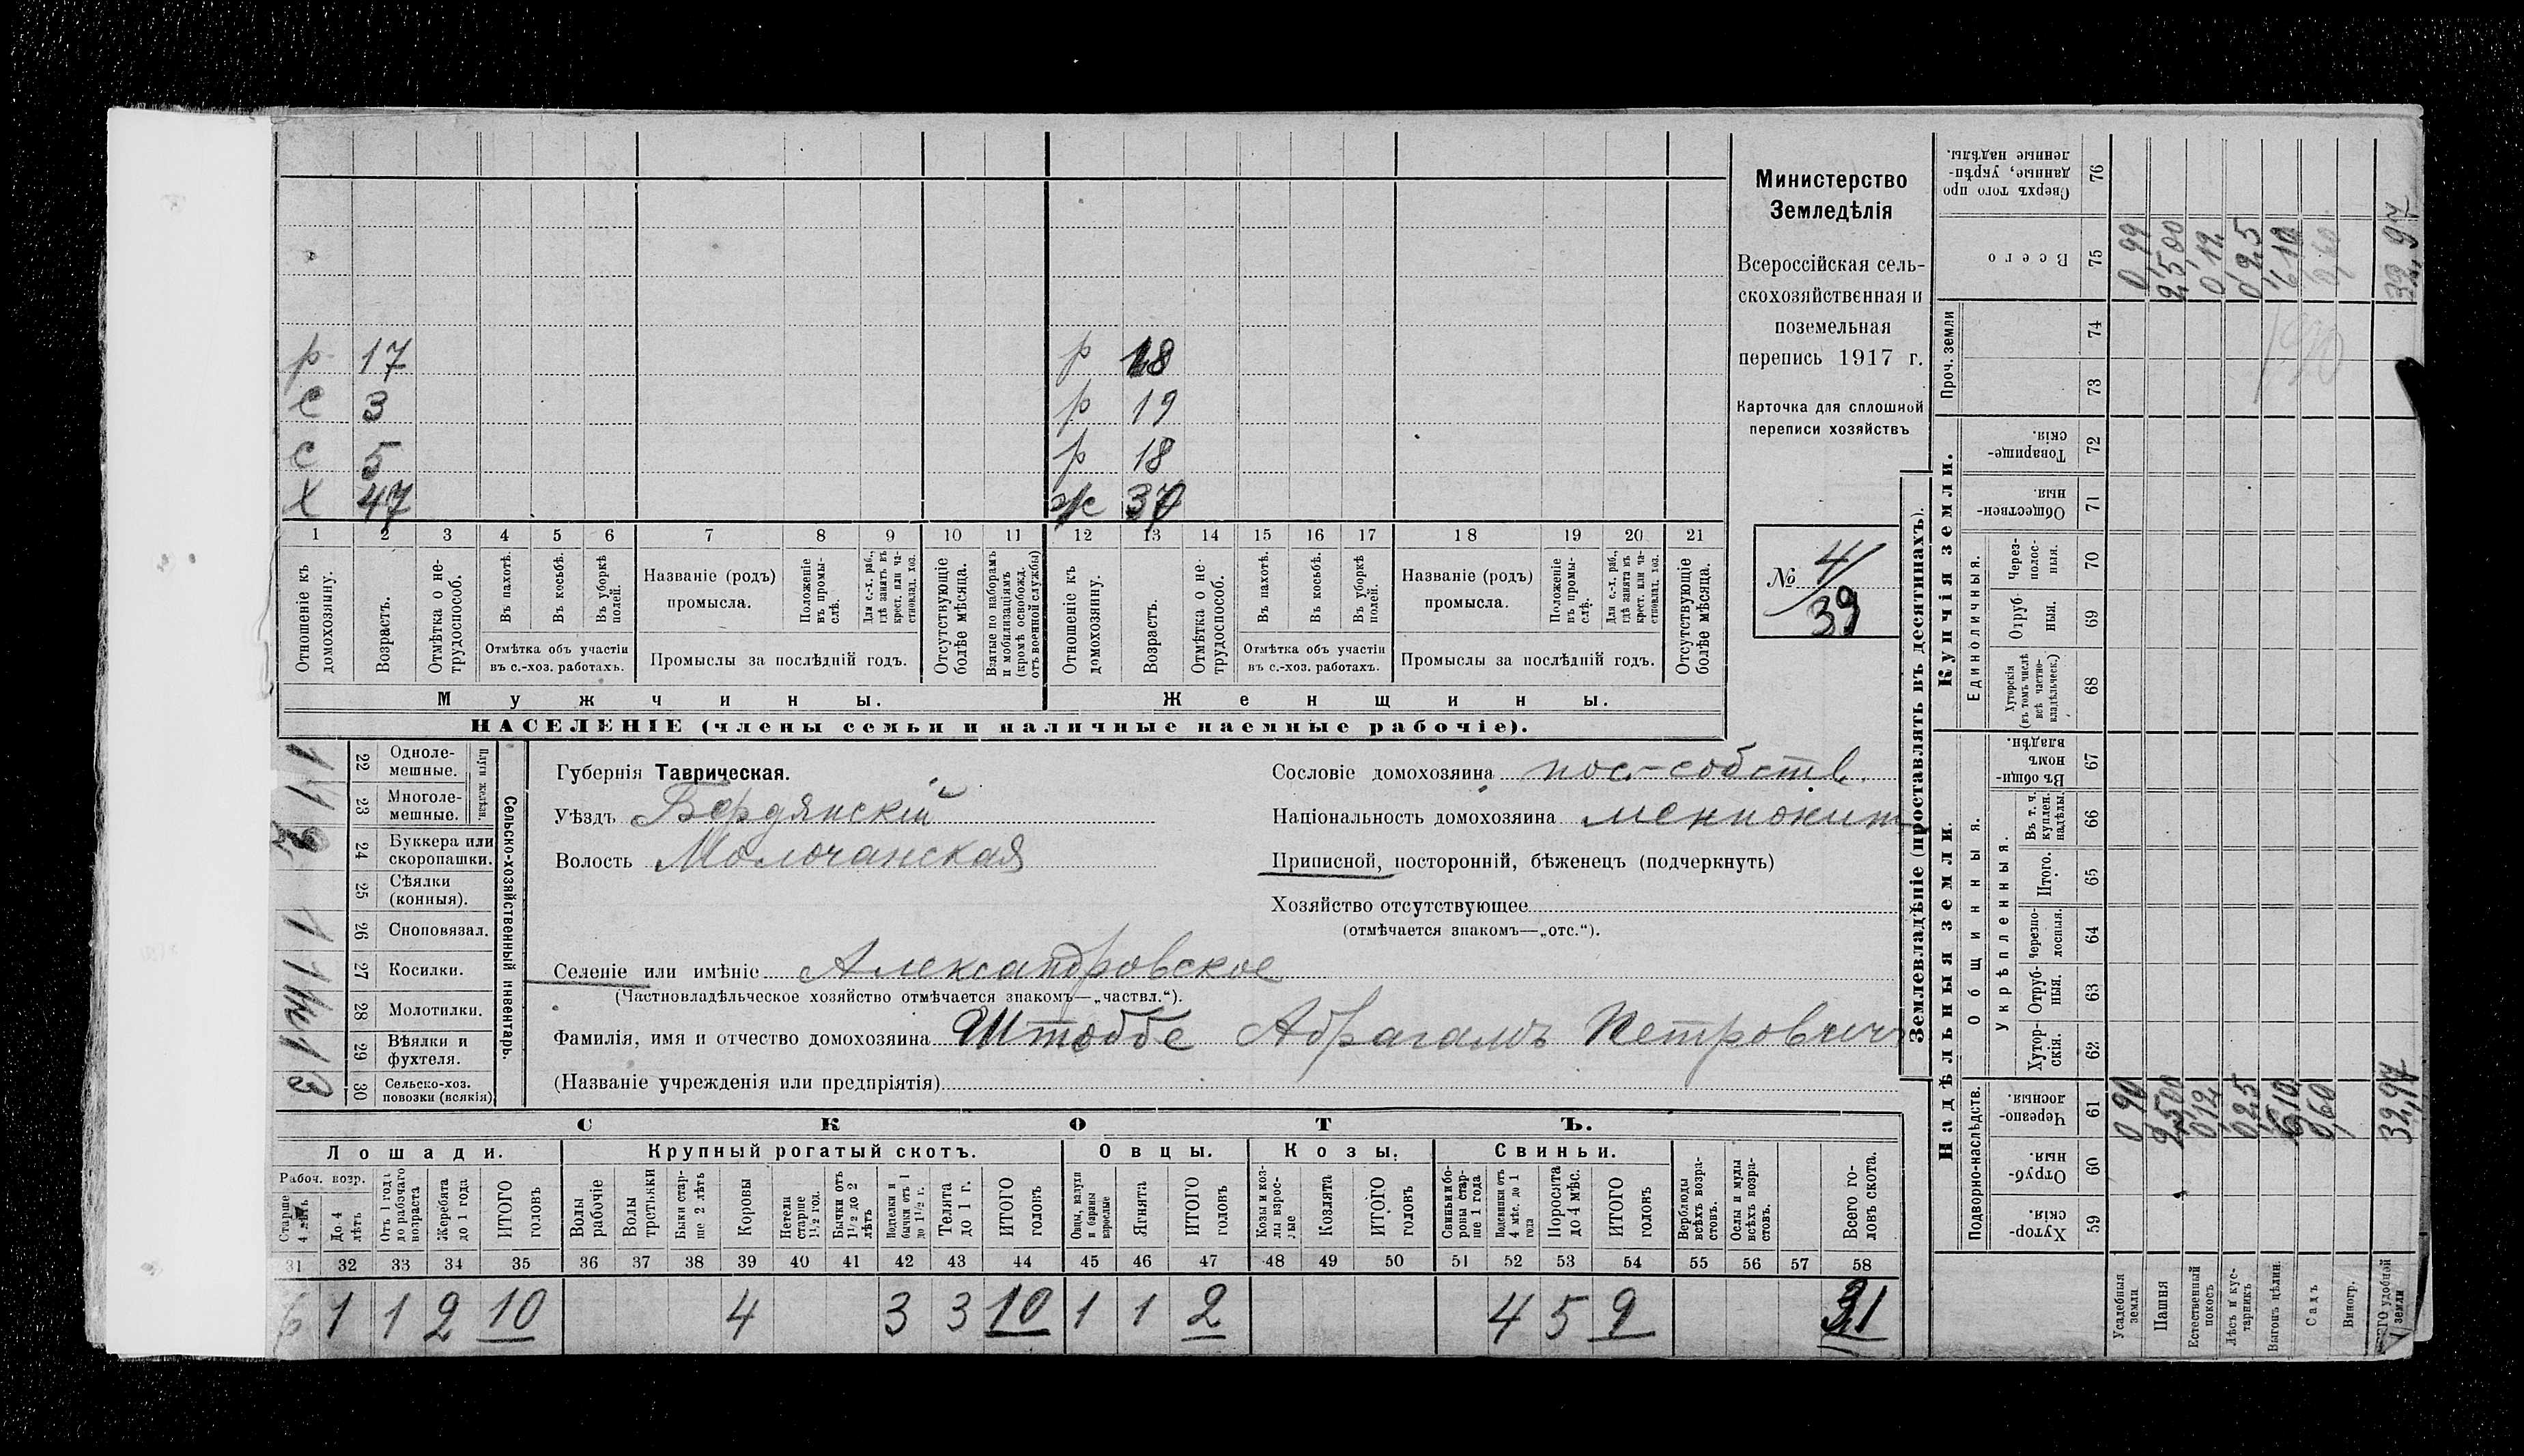 р 17 р 18
с 3 р 19
с 5 р 18
х 47 ж 37
1 2 3 4 5 6 7 8 9 10 11 12 13 14 15 16 17 18 19 20 21
Отношеніе къ домохозяину.
Возрастъ.
Отмѣтка о не-
трудоспособ.
Въ пахотѣ.
Въ косьбѣ.
Въ уборкѣ
полей.
Отмѣтка объ участіи
въ с.-хоз. работахъ.
Названіе (родъ)
промысла.
Положеніе
въ промы-
слѣ.
Для с.-х. раб.,
гдѣ занятъ въ
крест. или ча-
стновлад. хоз.
Промыслы за послѣдній годъ.
Отсутствующіе
болѣе мѣсяца.
Взятые по наборамъ
и мобилизаціямъ
(кромѣ освобожд.
отъ военной службы)
Отношеніе къ
домохозяину.
Возрастъ.
Отмѣтка о не-
трудоспособ.
Въ пахотѣ.
Въ косьбѣ.
Въ уборкѣ
полей.
Отмѣтка объ участіи
въ с.-хоз. работахъ.
Названіе (родъ)
промысла.
Положеніе
въ промы-
слѣ.
Для с.-х. раб.,
гдѣ занята въ
крест. или ча-
стновлад. хоз.
Промыслы за послѣдній годъ.
Отсутствующіе
болѣе мѣсяца.
Мужчины. Женщины.
НАСЕЛЕНІЕ (члены семьи и наличные наемные рабочіе).
Министерство
Земледѣлія
Всероссійская сель-
скохозяйственная и
поземельная
перепись 1917 г.
Карточка для сплошной
переписи хозяйствъ
№ 4/39
Сельско-хозяйственный инвентарь.
Плуги желѣзн.
22 Одноле-
мешные. 1
23 Многоле-
мешные. 1
24 Буккера или
скоропашки. 2
25 Сѣялки
(конныя).
26 Сноповязал. 1
27 Косилки. 1
28 Молотилки.
29 Вѣялки и
фухтеля. 1
30 Сельско-хоз.
повозки (всякія) 3
Губернія Таврическая.
Уѣздъ Бердянскій
Волость Молочанская
Сословіе домохозяина пос.-собств.
Національность домохозяина меннонит
Приписной, посторонній, бѣженецъ (подчеркнуть)
Хозяйство отсутствующее
(отмѣчается знакомъ—„отс.“).
Селеніе или имѣніе Александровское
(Частновладѣльческое хозяйство отмѣчается знакомъ—„частвл.“).
Фамилія, имя и отчество домохозяина Штоббе Абрагамъ Петровичъ
(Названіе учрежденія или предпріятія)
СКОТЪ.
Лошади. Крупный рогатый скотъ. Овцы. Козы. Свиньи.
Рабоч. возр.
Старше
4 лѣтъ
До 4
лѣтъ
Отъ 1 года
до рабочаго
возраста
Жеребята
до 1 года
ИТОГО
головъ
Волы
рабочіе
Волы
третьяки
Быки стар-
ше 2 лѣтъ
Коровы
Нетели
старше
1½ год.
Бычки отъ
1½ до 2
лѣтъ
Подтелки и
бычки отъ 1
до 1½ г.
Телята
до 1 г.
ИТОГО
головъ
Овцы, валухи
и бараны
взрослые
Ягнята
ИТОГО
головъ
Козы и коз-
лы взрос-
лые
Козлята
ИТОГО
головъ
Свиньи и бо-
ровы стар-
ше 1 года
Подсвинки отъ
4 мѣс. до 1
года
Поросята
до 4 мѣс.
ИТОГО
головъ
Верблюды
всѣхъ возра-
стовъ.
Ослы и мулы
всѣхъ возра-
стовъ.
Всего го-
ловъ скота.
31 32 33 34 35 36 37 38 39 40 41 42 43 44 45 46 47 48 49 50 51 52 53 54 55 56 57 58
6 1 1 2 10 4 3 3 10 1 1 2 4 5 9 31
Землевладѣніе (проставлять въ десятинахъ).
Надѣльныя земли. Купчія земли.
Подворно-наслѣдств.
Общинныя.
Укрѣпленныя.
Единоличныя.
Проч. земли
59 Хутор-
скія.
60 Отруб-
ныя.
61 Черезпо-
лосныя.
62 Хутор-
скія.
63 Отруб-
ныя.
64 черезпо-
лосныя.
65 Итого.
66 Въ т. ч.
куплен.
надѣлы.
67 Въ общи-
номъ
владѣн.
68 Хуторскія
(въ томъ числѣ
всѣ частно-
владѣльческ.)
69 Отруб-
ныя.
70 Через-
полос-
ныя.
71 Обществен-
ныя.
72 Товарище-
скія.
73
74
75 Всего
76 Сверхъ того про
данные, укрѣп-
ленные надѣлы.
Усадебныя
земли
Пашня 25,00 25,00
Естественный
покосъ
Лѣсъ и кус-
тарникъ 0,25 0,25
Выгонъ цѣлин. 6,10 6,10
Садъ 0,60 0,60
Виногр.
удобной
земли 32,97 32,97